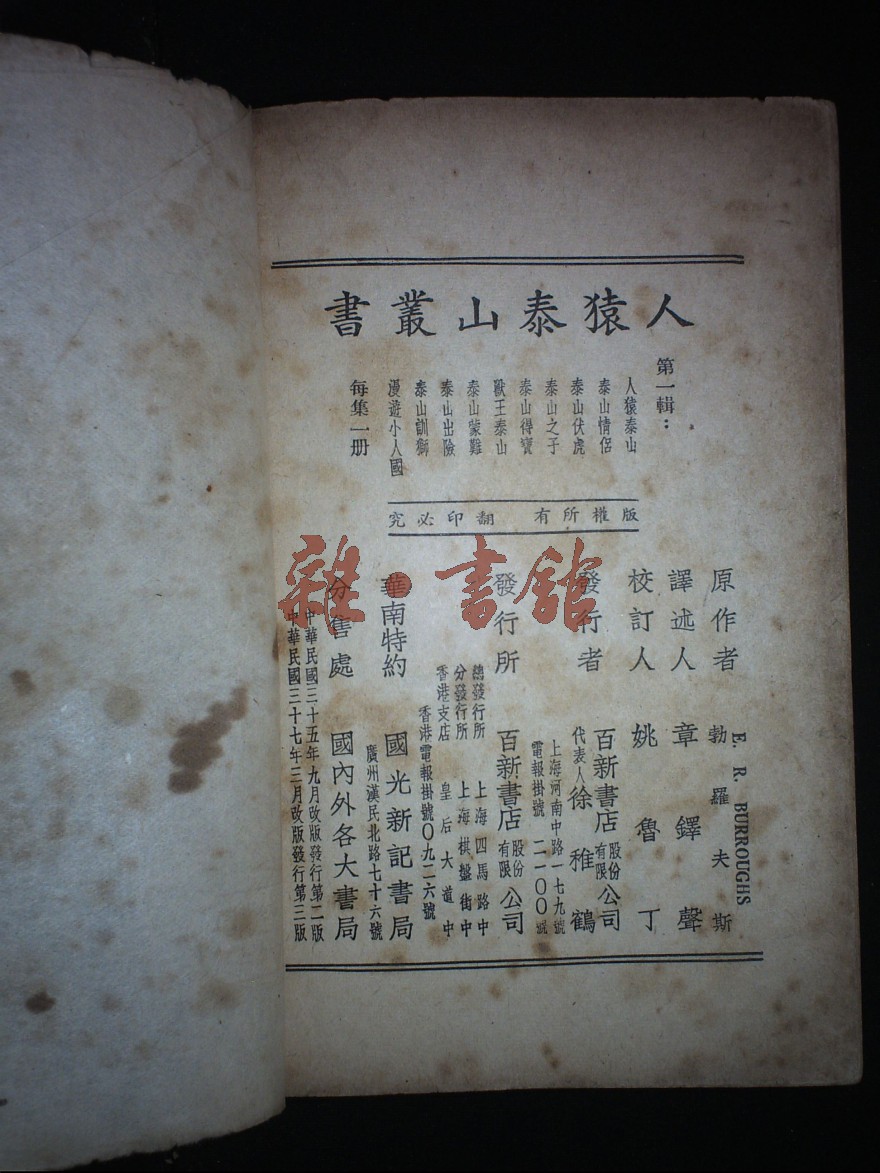 人猿泰山叢書
第一輯：
人猿泰山
泰山情侶
泰山伏虎
泰山之子
泰山得寶
獸王泰山
泰山蒙難
泰山出險
泰山訓獅
漫遊小人國
每集一册
版權所有 翻印必究
原作者 E. R. BURROUGHS
勃羅夫斯
譯述人 章鐸聲
校訂人 姚魯丁
發行者 百新書店股份有限公司
代表人徐稚鶴
上海河南中路一七九號
電報掛號二一一〇〇號
發行所 百新書店股份有限公司
總發行所 上海四馬路中
分發行所 上海棋盤街中
香港支店 皇后大道中
香港電報掛號〇九二六號
華南特約 國光新記書局
廣州漢民北路七十六號
分售處 國內外各大書局
中華民國三十五年九月改版發行第二版
中華民國三十七年三月改版發行第三版
雜·書館